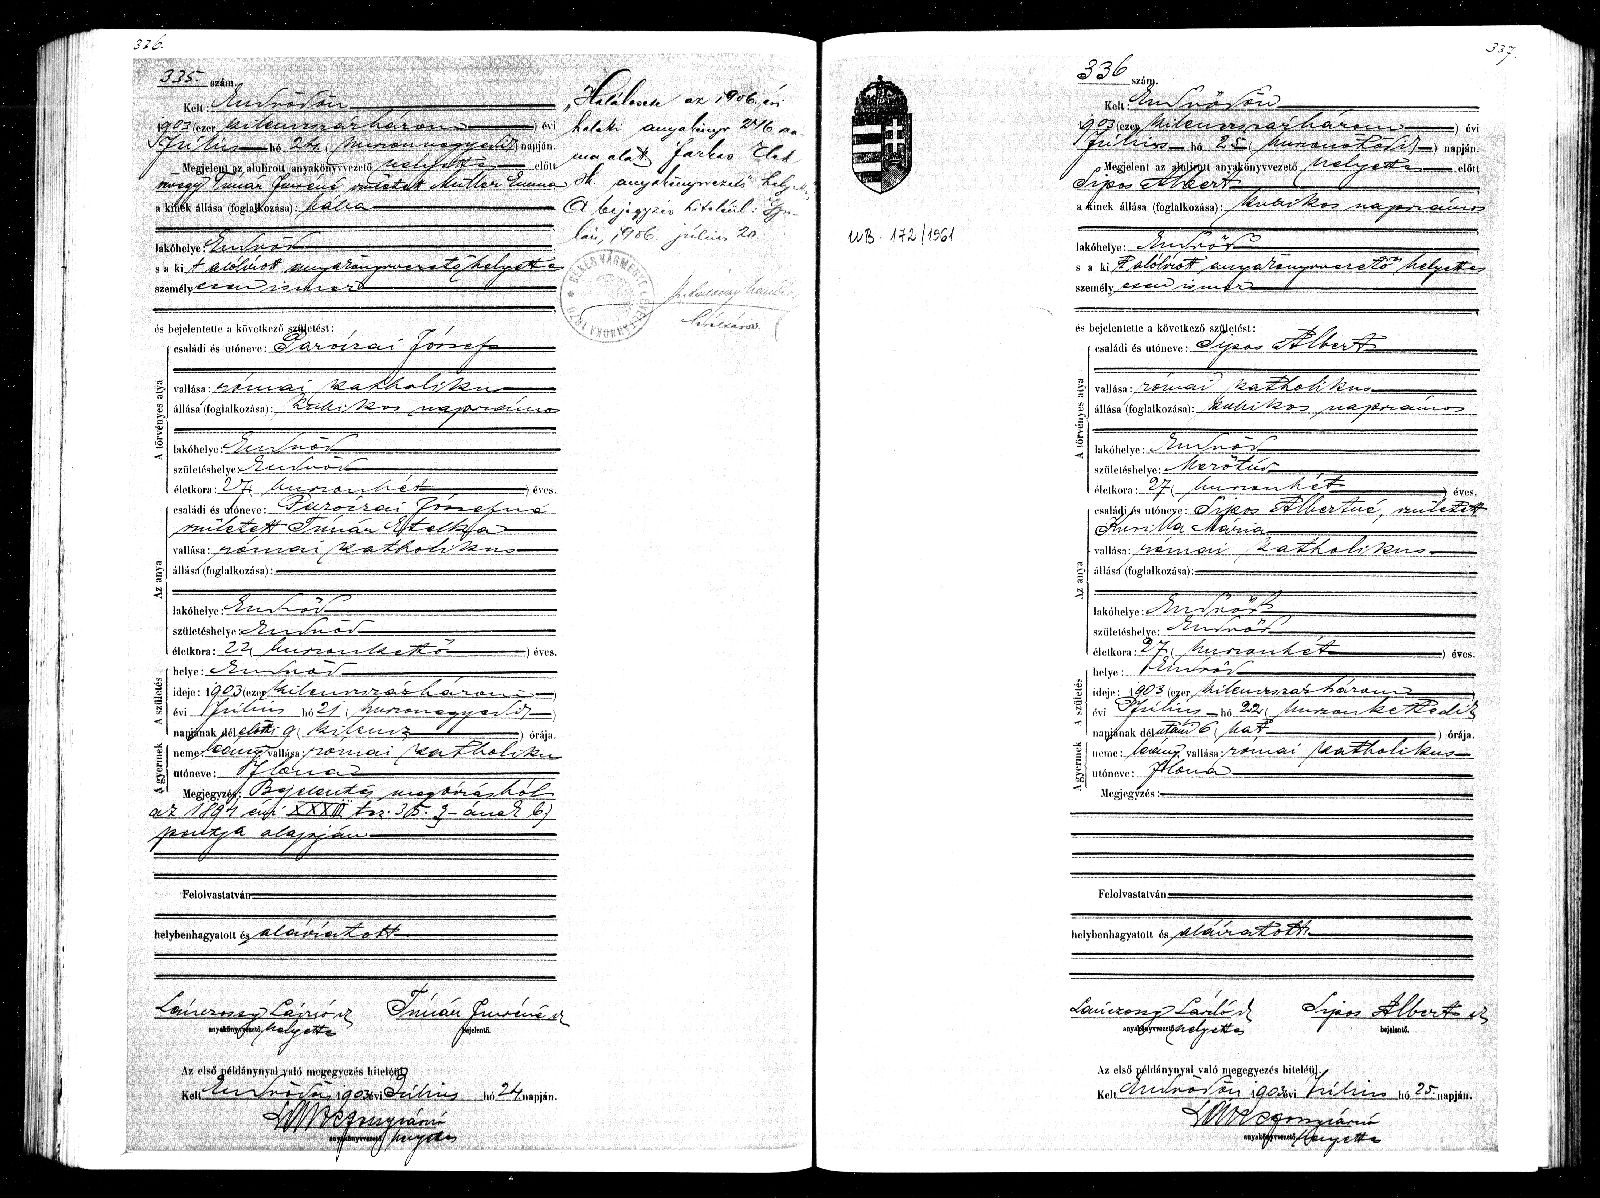 326.
335. szám.
Kelt: Endrődön
1903 (ezer kilenczszázhárom) évi
Július hó 24 (huszonnegyedik) napján.
Megjelent az alulirott anyakönyvvezető helyettes előtt
özvegy Tímár Imréné született Müller Emma
a kinek állása (foglalkozása): bába
lakóhelye: Endrőd
s a ki t alólírott anyakönyvvezető helyettes
személyesen ismer
és bejelentette a következő születést:
A törvényes atya
családi és utóneve: Paróczai József
vallása: római katholikus
állása (foglalkozása): kubikos napszámos
lakóhelye: Endrőd
születéshelye: Endrőd
életkora: 27 (huszonhét) éves.
Az anya
családi és utóneve: Paróczai Józsefné
született Tímár Etelka
vallása: római katholikus
állása (foglalkozása):
lakóhelye: Endrőd
születéshelye: Endrőd
életkora: 22 (huszonkettő) éves.
A születés
helye: Endrőd
ideje: 1903 (ezer kilenczszázhárom)
évi Július hó 21 (huszonegyedik)
napjának dél előtti 9 (kilencz) órája.
A gyermek
neme: leány vallása: római katholikus
utóneve: Ilona
Megjegyzés: Bejelentés megbízásból
az 1894 évi XXXIII tcz. 35. §-ának b)
pontja alapján
Felolvastatván
helybenhagyatott és aláíratott
Lánczossy László sk Tímár Imréné sk
anyakönyvvezető helyettes bejelentő.
Az első példánynyal való megegyezés hiteléül
Kelt Endrődön 1903 évi Július hó 24 napján.
anyakönyvvezető helyettes
"Halálesete az 1906. évi
halotti anyakönyv 246 szá-
ma alatt Farkas Elek
sk. anyakönyvvezető helyettes"
A bejegyzés hiteléül: Gyu-
lán, 1906. július 20
337.
UB. 172/1961
336 szám.
Kelt: Endrődön
1903 (ezer kilenczszázhárom) évi
Július hó 25 (huszonötödik) napján.
Megjelent az alulirott anyakönyvvezető helyettes előtt
Sipos Albert
a kinek állása (foglalkozása): kubikos napszámos
lakóhelye: Endrőd
s a ki t alólírott anyakönyvvezető helyettes
személyesen ismer
és bejelentette a következő születést:
A törvényes atya
családi és utóneve: Sipos Albert
vallása: római katholikus
állása (foglalkozása): kubikos napszámos
lakóhelye: Endrőd
születéshelye: Mezőtúr
életkora: 27 (huszonhét) éves.
Az anya
családi és utóneve: Sipos Albertné, született
Kurilla Mária
vallása: római katholikus
állása (foglalkozása):
lakóhelye: Endrőd
születéshelye: Endrőd
életkora: 27 (huszonhét) éves.
A születés
helye: Endrőd
ideje: 1903 (ezer kilenczszázhárom)
évi Július hó 22 (huszonkettedik)
napjának dél utáni 6 (hat) órája.
A gyermek
neme: leány vallása: római katholikus
utóneve: Ilona
Megjegyzés:
Felolvastatván
helybenhagyatott és aláíratott
Lánczossy László sk Sipos Albert sk
anyakönyvvezető helyettes bejelentő.
Az első példánynyal való megegyezés hiteléül
Kelt Endrődön 1903 évi Július hó 25 napján.
anyakönyvvezető helyettes